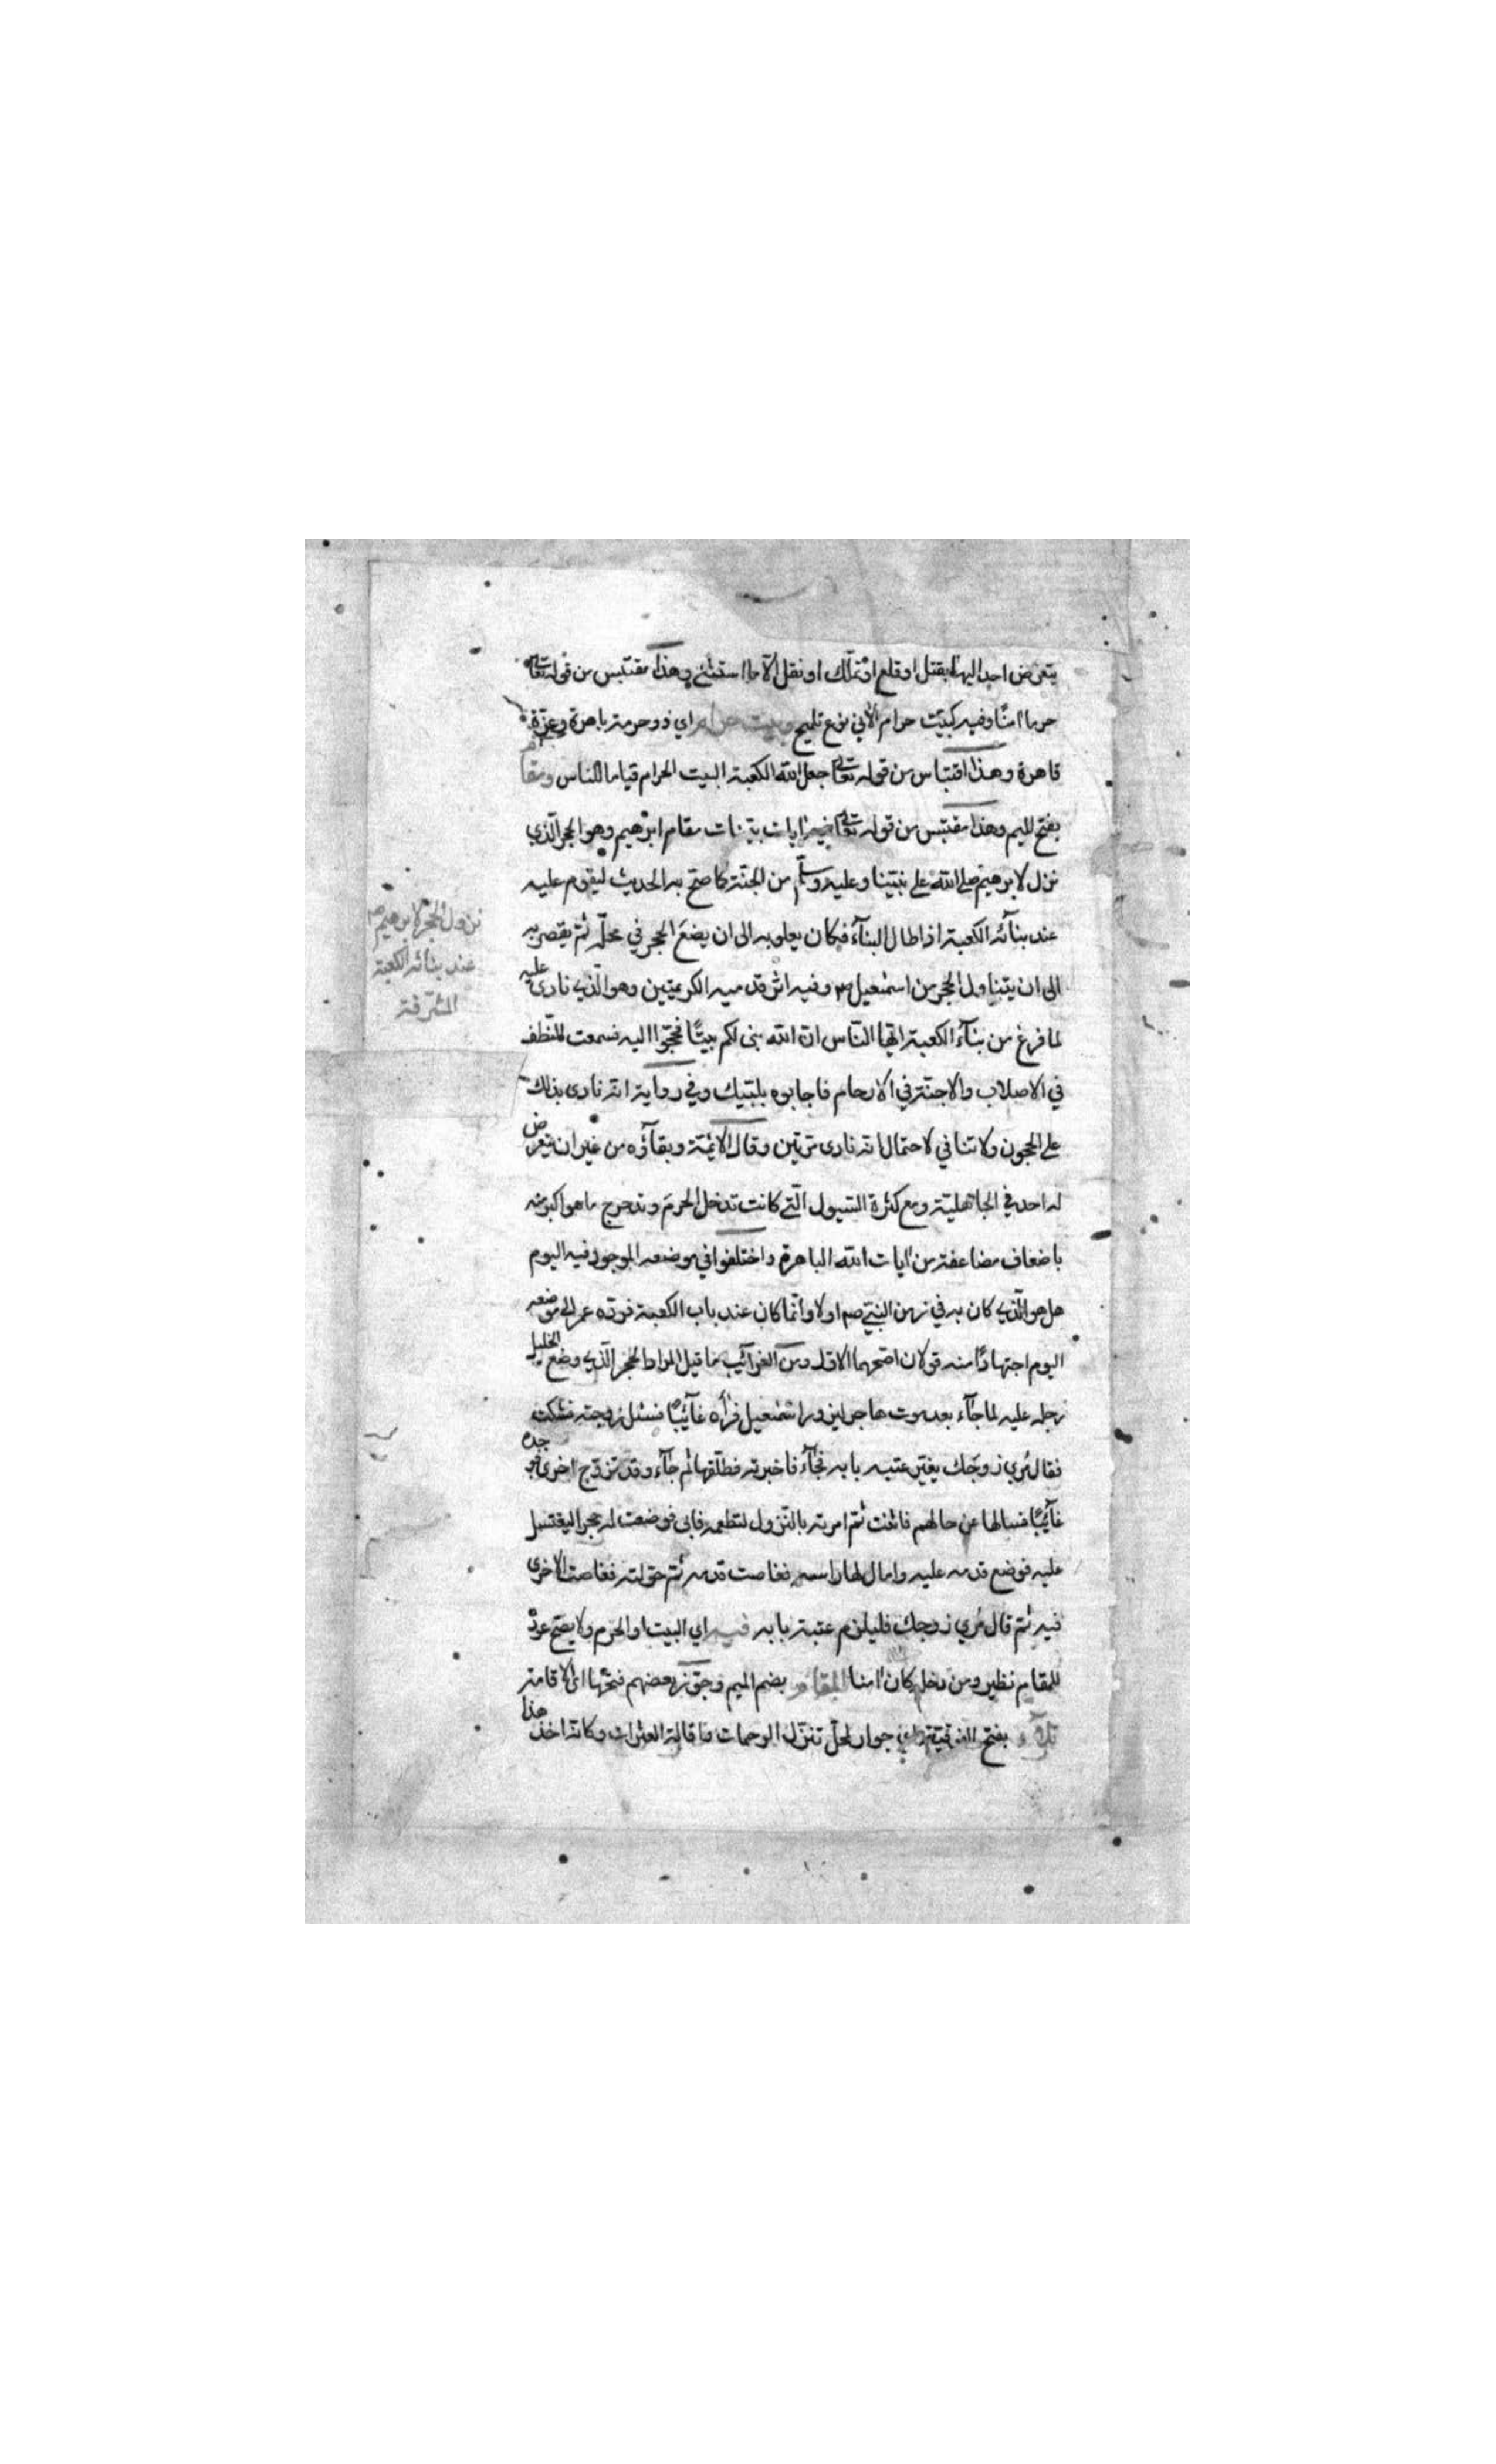 يتعرض احد اليها بقتل او قلع او تملك او نقل الا ما استثنى وهذا مقتبس من قوله تعالى
حرما امنًا وفيه كبيت حرام الآتي نوع تلميح وبيت حرام اي ذو حرمة باهرة وعزة
قاهرة وهذا اقتباس من قوله تعالى جعل الله الكعبة البيت الحرام قياما للناس ومقام
بفتح الميم وهذا مقتبس من قوله تعالى فيه ايات بيّنات مقام ابرهيم وهو الحجر الّذي
نزل لابرهيم صلى الله على نبيّنا وعليه وسلّم من الجنّة كما صحّ به الحديث ليقوم عليه
عند بنائه الكعبة اذا طال البنآء فكان يعلو به الى ان يضع الحجر في محلّه ثمّ يقصر به
الى ان يتناول الحجر من اسمعيل وفيه اثر قدميه الكريمتين وهو الّذي نادى عليه
لما فرغ من بنآء الكعبة ايّها النّاس انّ الله بنى لكم بيتًا فحجّوا اليه فسمعت النّطف
في الاصلاب والاجنّة في الارحام فاجابوه بلبّيك وفي رواية انّه نادى بذلك
على الحجون ولا تنافي لاحتمال انّه نادى مرّتين وقال الايمّة وبقآؤه من غير ان يتعرض
له احد في الجاهليّة ومع كثرة السّيول الّتي كانت تدخل الحرم وتدحرج ما هو اكبر منه
باضعاف مضاعفة من ايات الله الباهرة واختلفوا في موضعه الموجود فيه اليوم
هل هو الّذي كان به في زمن النبيّ صم اولا وانّما كان عند باب الكعبة فردّه عمر الى موضعه
اليوم اجتهادًا منه قولان اصحّهما الاوّل ومن الغرآئب ما قيل المراد الحجر الّذي وضع الخليل
رجله عليه لما جآء بعد موت هاجر ليزور اسمعيل فرأه غآئبًا فسئل زوجته فشكت
فقال مُري زوجك يغيّر عتبة بابه فجآء فاخبرته فطلّقها ثم جآء وقد تزوّج اخرى فوجده
غآئبًا فسالها عن حالهم فاثنت ثمّ امرته بالنّزول لتطعمه فابى فوضعت له حجرا ليغتسل
عليه فوضع قدمه عليه وامال لها راسه فغاصت قدمه ثمّ حوّلته فغاصت الاخرى
فيه ثمّ قال مُري زوجك فليلزم عتبة بابه فيه اي البيت او الحرم ولا يصحّ عوده
للمقام نظير ومن دخله كان امنا المقام بضم الميم وجوّز بعضهم فتحها اي الاقامة
بفتح الفوقيّة اي جوار لمحلّ تنزّل الرحمات واقالة العثرات وكانّه اخذ هذا
نزول الحجر لابرهيم
عند بنائه الكعبة
المشرّفة